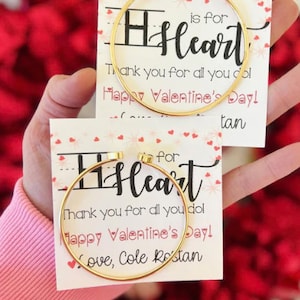 H is for
Heart
Thank you for all you do!
Happy Valentine's Day!
H is for
Heart
Thank you for all you do!
Happy Valentine's Day!
Love, Cole Rostan